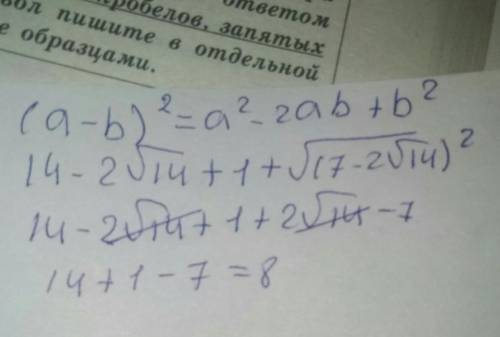 ответом
пробелов, запятых
вол пишите в отдельной
е образцами.
(a-b)² = a² - 2ab + b²
14 - 2√14 + 1 + √(7-2√14)²
14 - 2√14 + 1 + 2√14 - 7
14 + 1 - 7 = 8